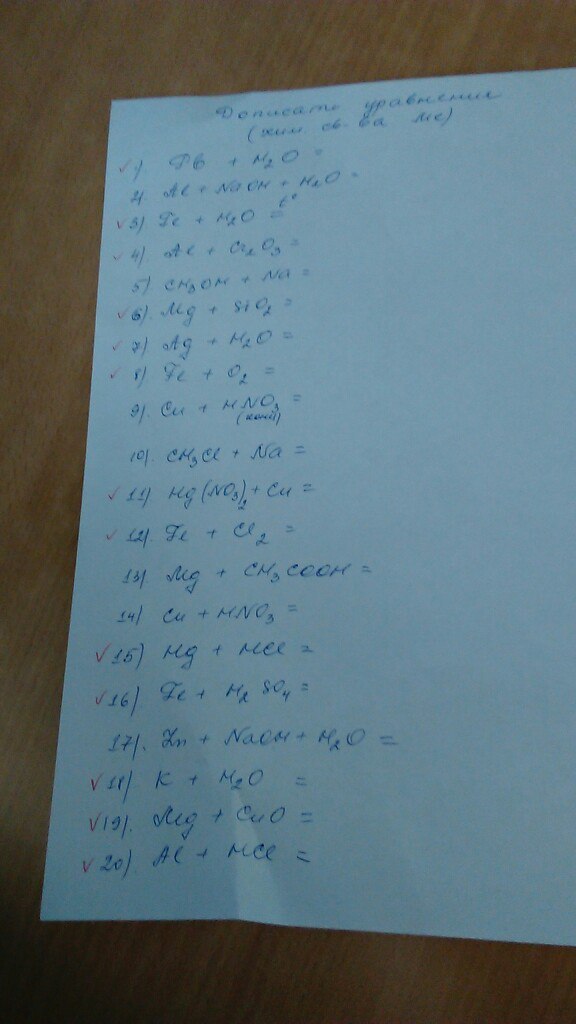 Дописать уравнения
(хим. св-ва Ме)
1) Pb + H₂O =
2) Al + NaOH + H₂O =
3) Fe + H₂O = t°
4) Al + Cr₂O₃ =
5) CH₃OH + Na =
6) Mg + SiO₂ =
7) Ag + H₂O =
8) Fe + O₂ =
9) Cu + HNO₃ =
(конц)
10) CH₃Cl + Na =
11) Hg(NO₃)₂ + Cu =
12) Fe + Cl₂ =
13) Mg + CH₃COOH =
14) Cu + HNO₃ =
15) Hg + HCl =
16) Fe + H₂SO₄ =
17). Zn + NaOH + H₂O =
18) K + H₂O =
19). Mg + CuO =
20) Al + HCl =